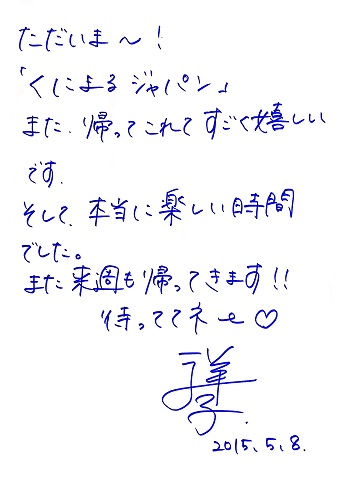 ただいま〜!
「くによるジャパン」
また、帰ってこれてすごく嬉しい
です.
そして、本当に楽しい時間
でした。
また来週も帰ってきます!!
待っててネ〜♡
2015.5.8.